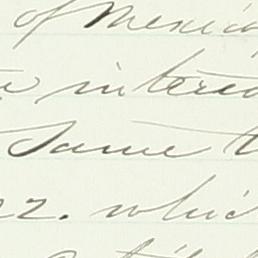 of Mexico
intere
same t
22. which